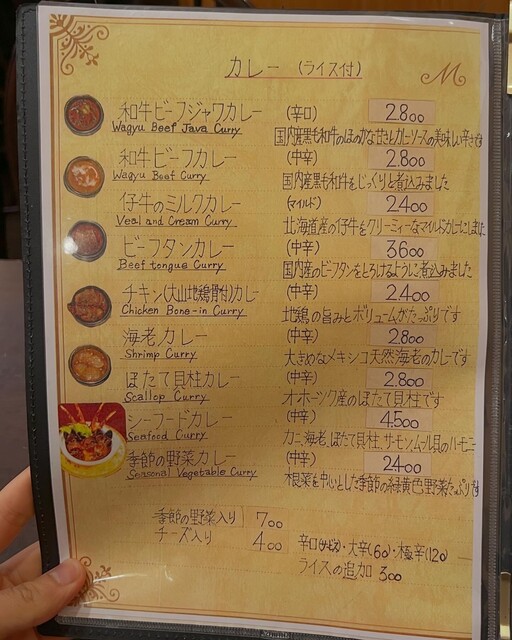 カレー (ライス付)
M
和牛ビーフジャワカレー (辛口) 2.800
Wagyu Beef Java Curry
国内産黒毛和牛のほのかな甘さとカレーソースの美味しい辛さです
和牛ビーフカレー (中辛) 2.800
Wagyu Beef Curry
国内産黒毛和牛をじっくりと煮込みました
仔牛のミルクカレー (マイルド) 2.400
Veal and Cream Curry
北海道産の仔牛をクリーミィーなマイルドカレーにしました
ビーフタンカレー (中辛) 3600
Beef tongue Curry
国内産のビーフタンをとろけるように煮込みました
チキン(大山地鶏骨付)カレー (中辛) 2.400
Chicken Bone-in Curry
地鶏の旨みとボリュームがたっぷりです
海老カレー (中辛) 2.800
Shrimp Curry
大きめなメキシコ天然海老のカレーです
ほたて貝柱カレー (中辛) 2.800
Scallop Curry
オホーツク産のほたて貝柱です
シーフードカレー (中辛) 4.500
Seafood Curry
カニ、海老、ほたて貝柱、サーモン、ムール貝のハーモニ
季節の野菜カレー (中辛) 2400
Seasonal Vegetable Curry
根菜を中心とした季節の緑黄色野菜たっぷりです
季節の野菜入り 700
チーズ入り 400
辛口(サービス)・大辛(60)・極辛(120)
ライスの追加 300